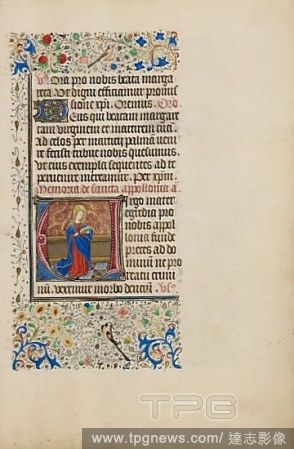 V. Ora pro nobis beata marga
reta Ut digni efficiamur promis
sione xpi. Oremus. Oro
Deus qui beatam margare
tam virginem et martirem tuam
Ad celos per martirii palmam
fecisti tribue nobis quesumus
ut eius exempla sequentes ad te
mereamur. Per xpm
Memoria de sancta appollonia a
Virgo mater
egregia pro
nobis appol
lonia funde
preces ad do
minum ne pro
reatu crimi
num morbo dencium. Vs
TPG
www.tpgnews.com / 達志影像